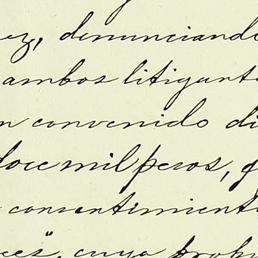 ez, denunciando
ambos litigante
n convenido di
doce mil pesos, q
consentimiento
ces", cuya prop